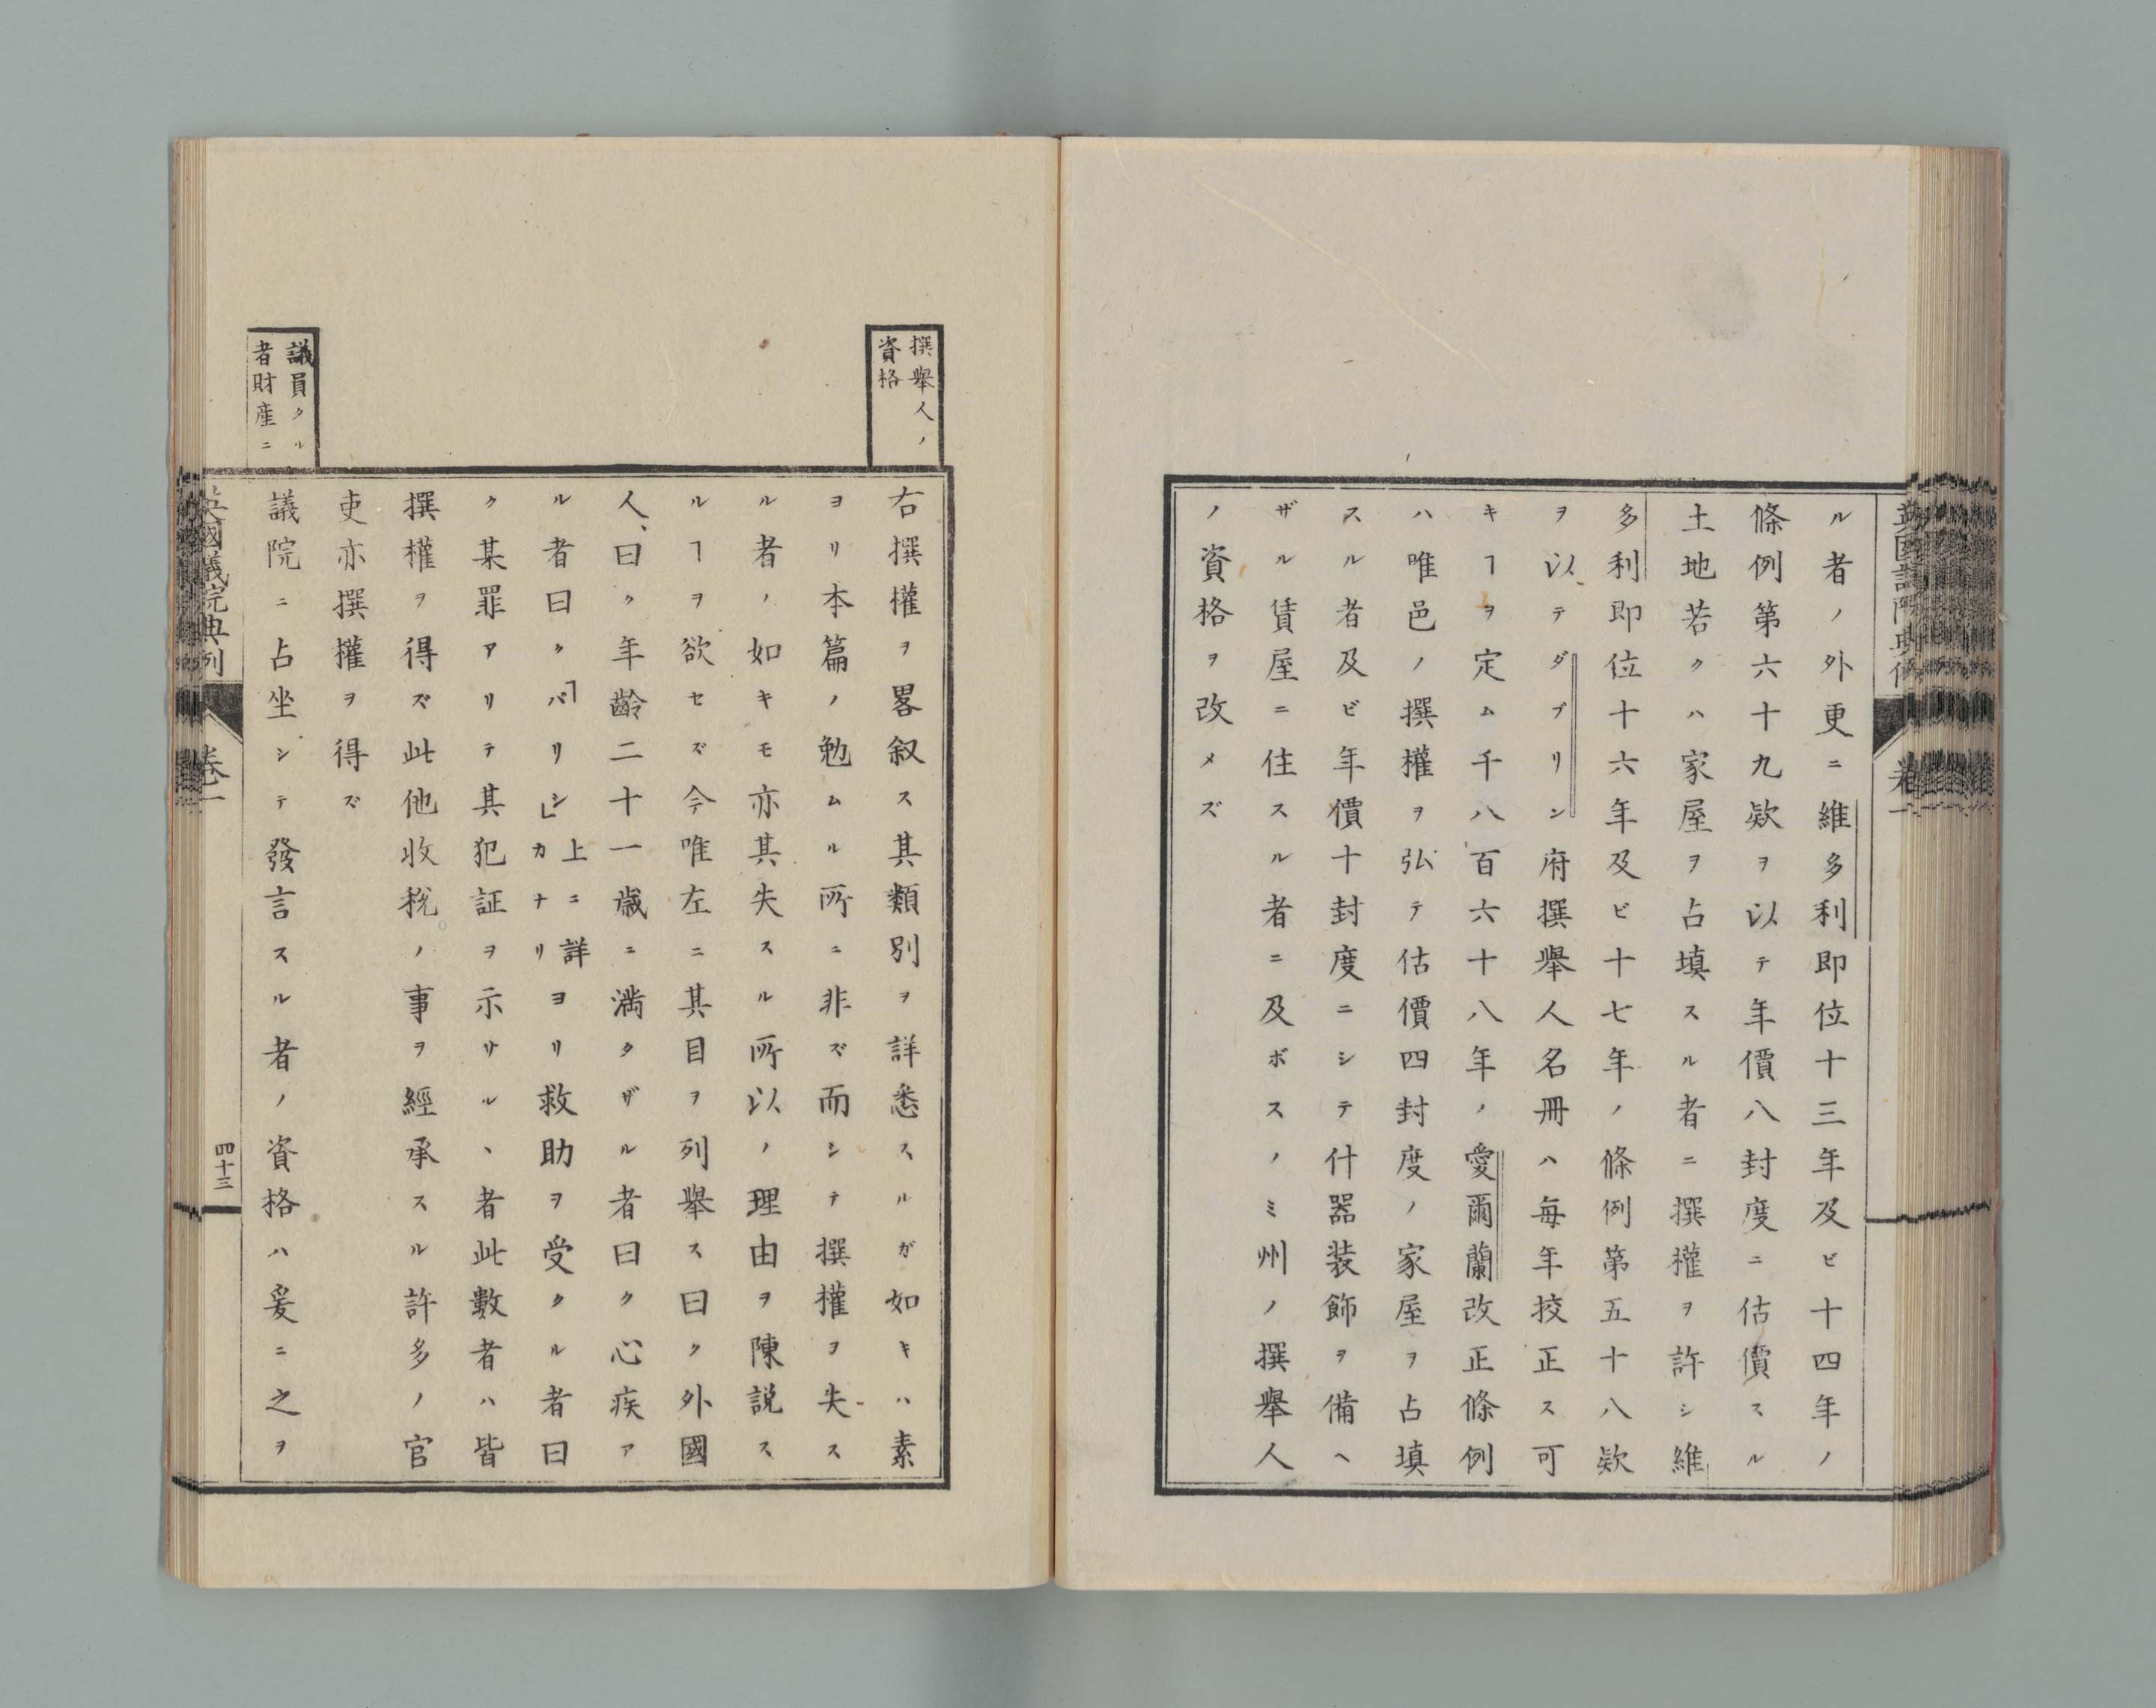 ル者ノ外更ニ維多利即位十三年及ビ十四年ノ
條例第六十九欵ヲ以テ年價八封度ニ估價スル
土地若クハ家屋ヲ占塡スル者ニ撰權ヲ許シ維
多利即位十六年及ビ十七年ノ條例第五十八欵
ヲ以テダブリン府撰擧人名冊ハ每年挍正ス可
キヿヲ定ム千八百六十八年ノ愛爾蘭改正條例
ハ唯邑ノ撰權ヲ弘テ估價四封度ノ家屋ヲ占塡
スル者及ビ年價十封度ニシテ什器装飾ヲ備ヘ
ザル賃屋ニ住スル者ニ及ボスノミ州ノ撰擧人
ノ資格ヲ改メズ
撰擧人ノ
資格
右撰權ヲ畧叙ス其類別ヲ詳悉スルガ如キハ素
ヨリ本篇ノ勉ムル所ニ非ズ而シテ撰權ヲ失ス
ル者ノ如キモ亦其失スル所以ノ理由ヲ陳説ス
ルヿヲ欲セズ今唯左ニ其目ヲ列擧ス曰ク外國
人、曰ク年齡二十一歳ニ満タザル者曰ク心疾ア
ル者曰ク「パリシ」上ニ詳カナリヨリ救助ヲ受クル者曰
ク某罪アリテ其犯証ヲ示サルヽ者此數者ハ皆
撰權ヲ得ズ此他收税ノ事ヲ經承スル許多ノ官
吏亦撰權ヲ得ズ
議員タル
者財產ニ
議院ニ占坐シテ發言スル者ノ資格ハ爰ニ之ヲ
英國議院典例 卷一 四十三